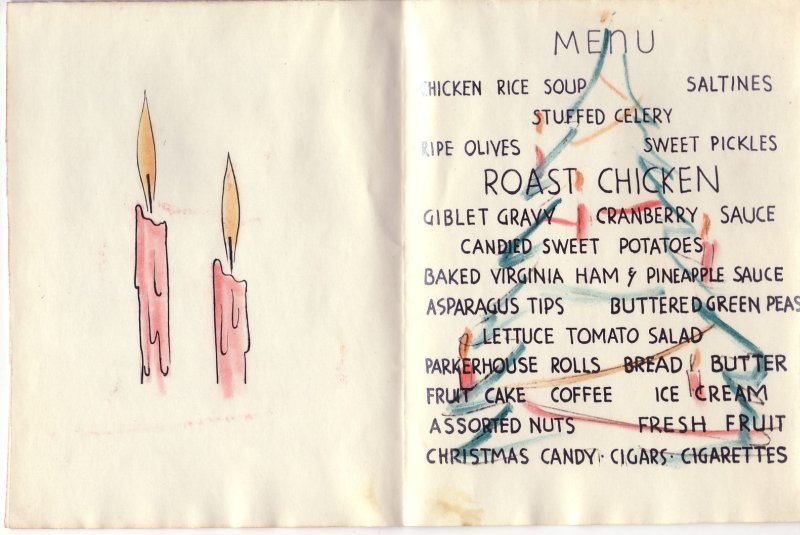 MENU
CHICKEN RICE SOUP SALTINES
STUFFED CELERY
RIPE OLIVES SWEET PICKLES
ROAST CHICKEN
GIBLET GRAVY CRANBERRY SAUCE
CANDIED SWEET POTATOES
BAKED VIRGINIA HAM & PINEAPPLE SAUCE
ASPARAGUS TIPS BUTTERED GREEN PEAS
LETTUCE TOMATO SALAD
PARKERHOUSE ROLLS BREAD, BUTTER
FRUIT CAKE COFFEE ICE CREAM
ASSORTED NUTS FRESH FRUIT
CHRISTMAS CANDY · CIGARS · CIGARETTES